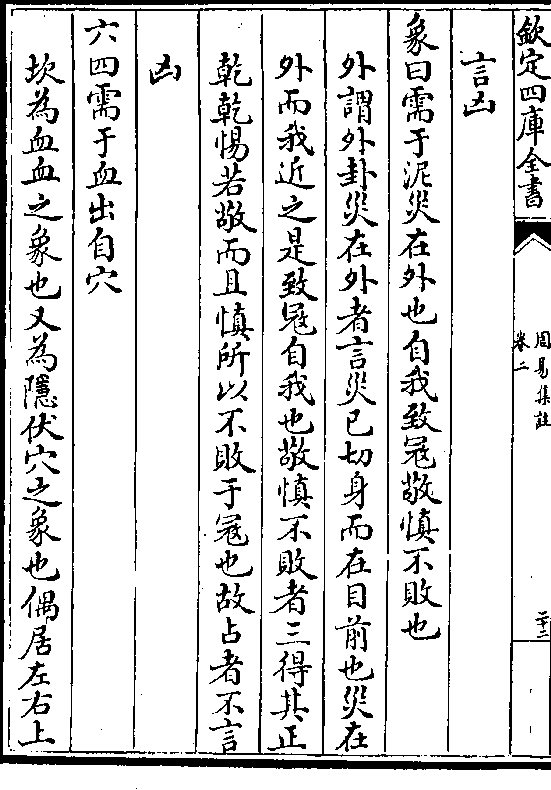 欽定四庫全書
周易集註
卷二
二十二
言凶
象曰需于泥災在外也自我致冦敬慎不敗也
外謂外卦災在外者言災已切身而在目前也災在
外而我近之是致冦自我也敬慎不敗者三得其正
乾乾惕若敬而且慎所以不敗于冦也故占者不言
凶
六四需于血出自穴
坎為血血之象也又為隱伏穴之象也偶居左右上